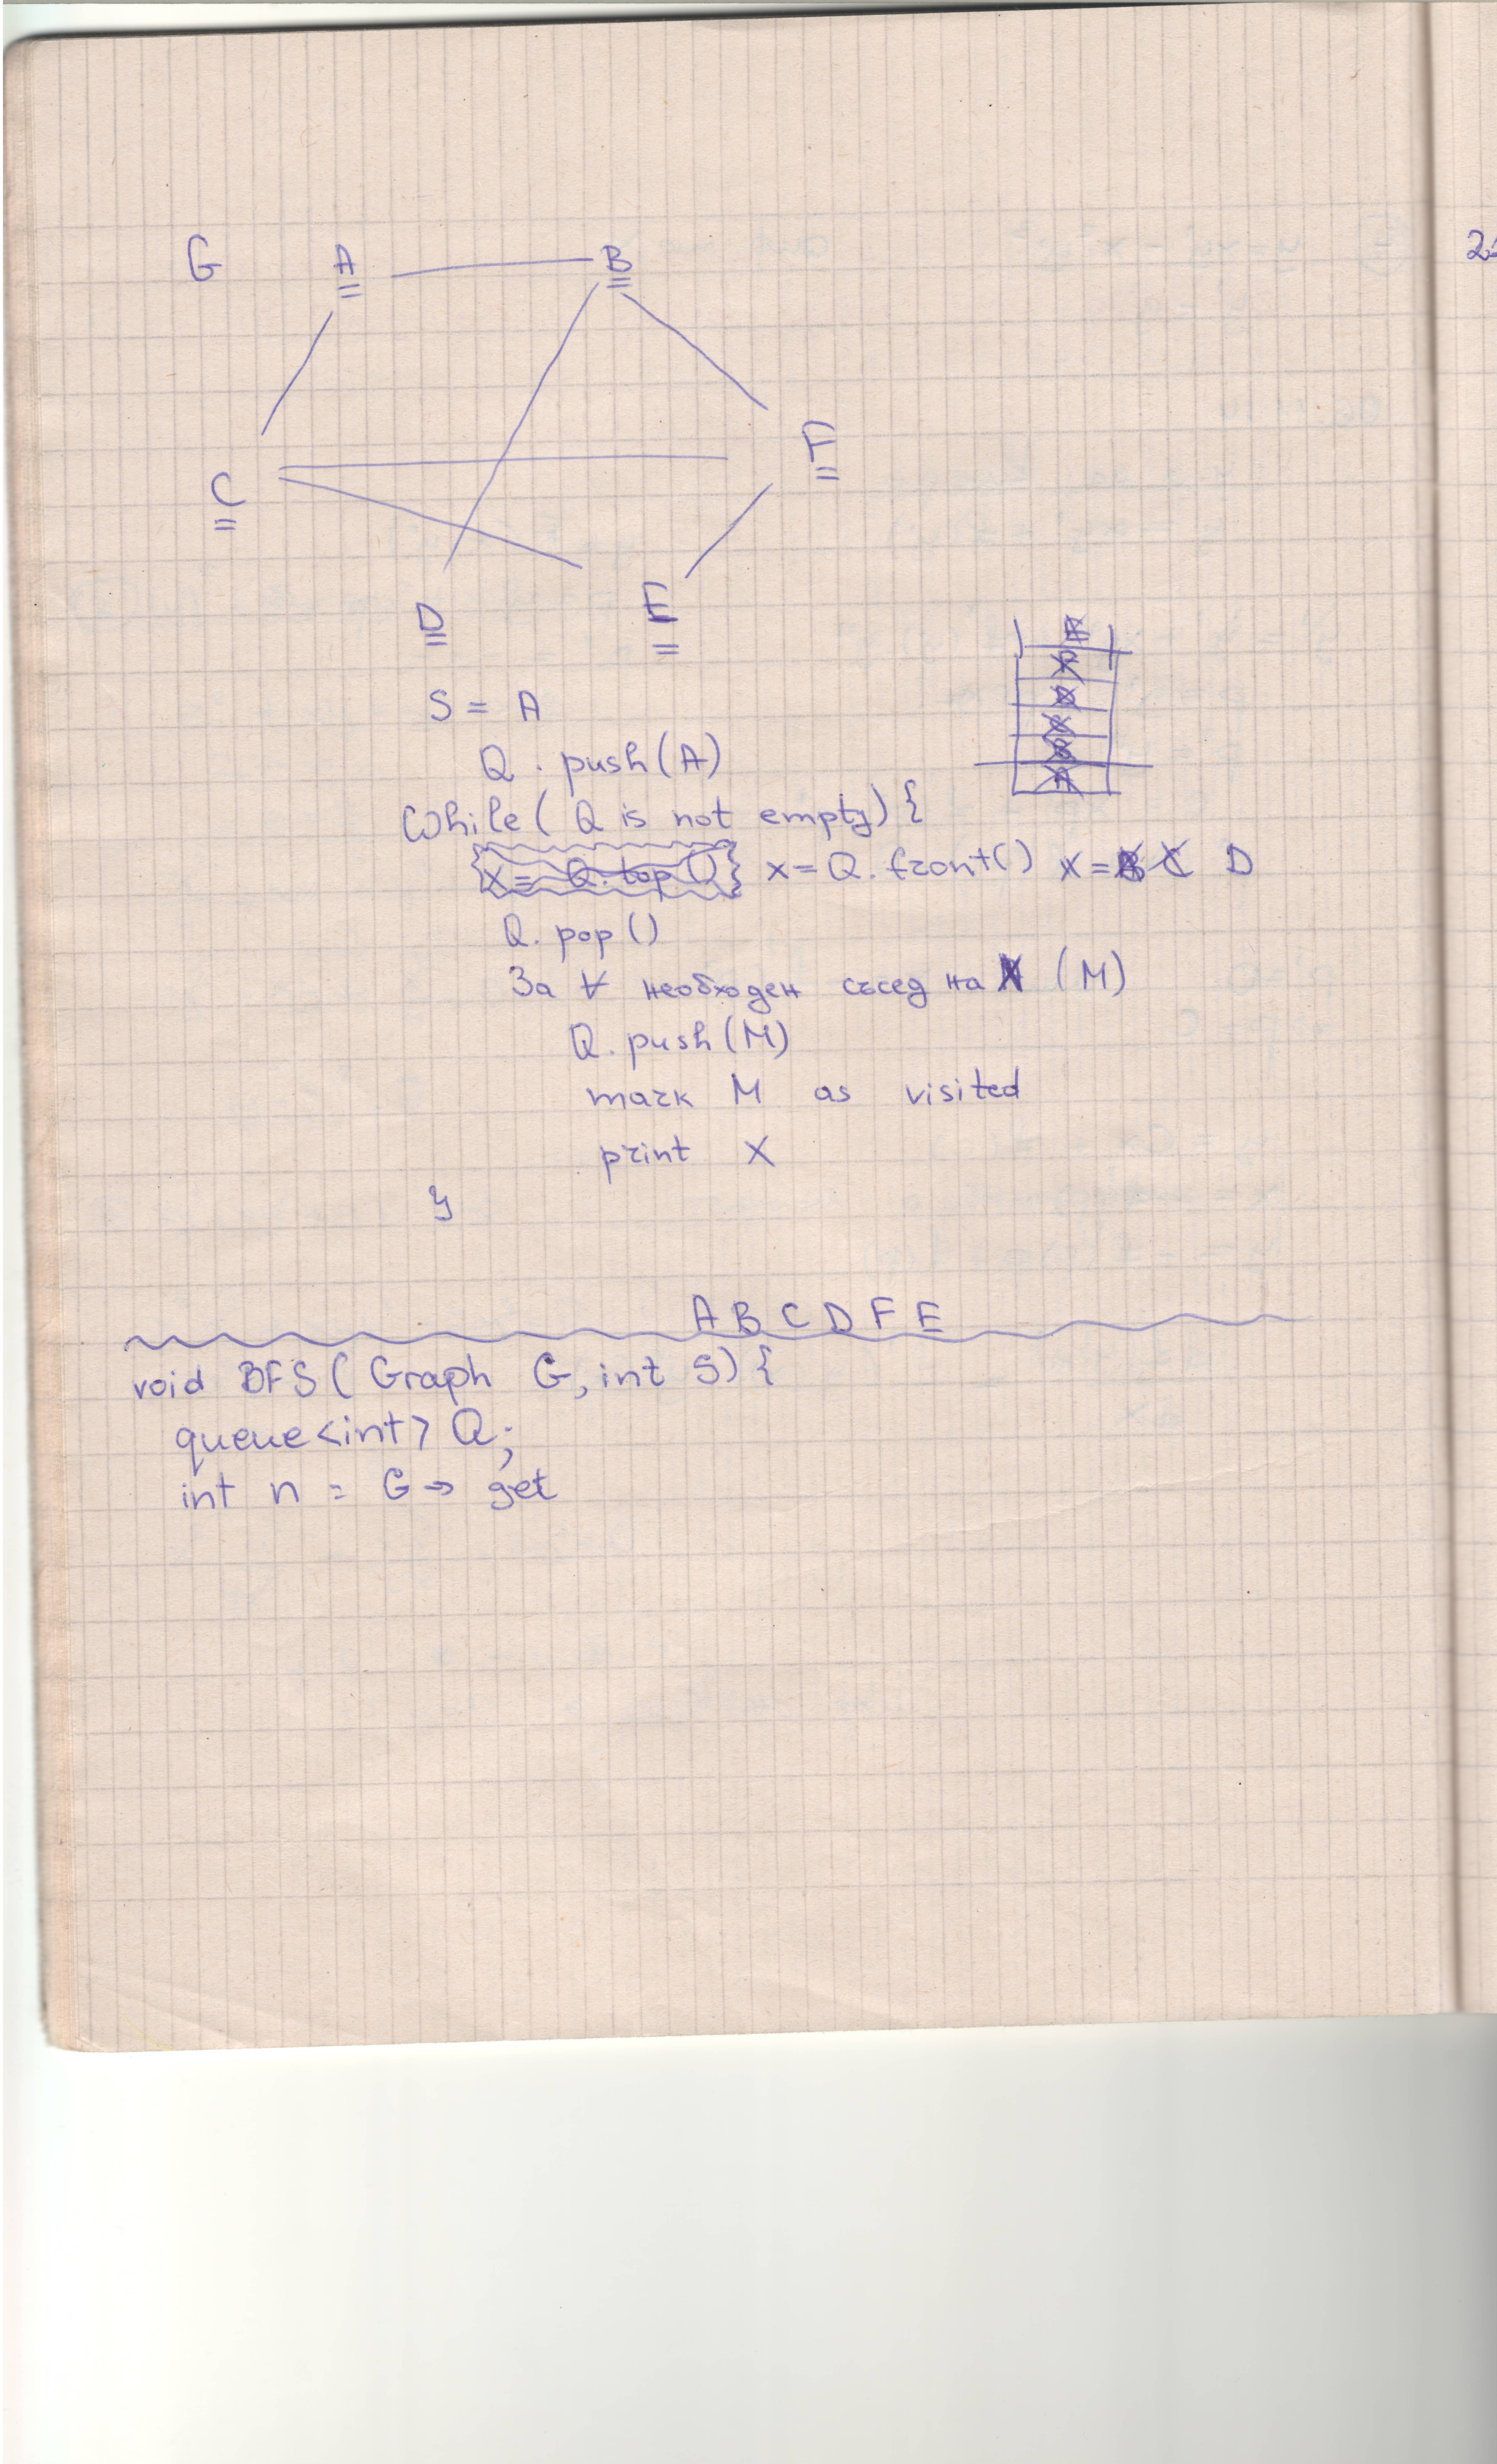 G A B
C F
D E
S = A
Q . push(A)
While ( Q is not empty) {
X = Q. top () x = Q. front() X = B C D
Q. pop ()
За ∀ необходен съсед на X (M)
Q. push (M)
mark M as visited
print X
}
A B C D F E
void BFS ( Graph G, int S) {
queue <int> Q;
int n = G -> get
F
F
D
C
B
A